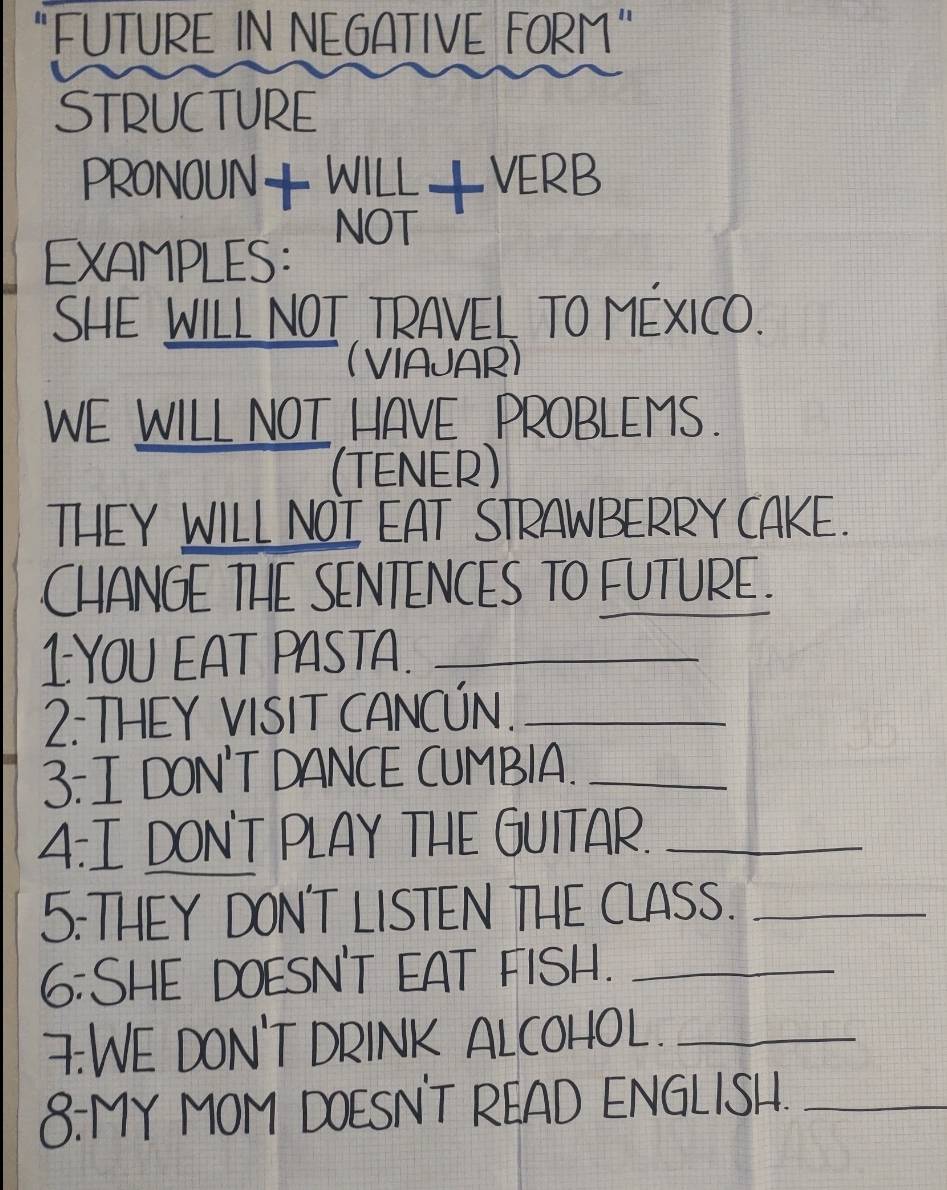 "FUTURE IN NEGATIVE FORM"
STRUCTURE
PRONOUN + WILL + VERB
NOT
EXAMPLES:
SHE WILL NOT TRAVEL TO MÉXICO.
(VIAJAR)
WE WILL NOT HAVE PROBLEMS.
(TENER)
THEY WILL NOT EAT STRAWBERRY CAKE.
CHANGE THE SENTENCES TO FUTURE.
1.-YOU EAT PASTA. ____________
2.-THEY VISIT CANCÚN. ____________
3.-I DON'T DANCE CUMBIA. ____________
4.-I DON'T PLAY THE GUITAR. ____________
5.-THEY DON'T LISTEN THE CLASS. ____________
6.-SHE DOESN'T EAT FISH. ____________
7.-WE DON'T DRINK ALCOHOL. ____________
8.-MY MOM DOESN'T READ ENGLISH. ____________